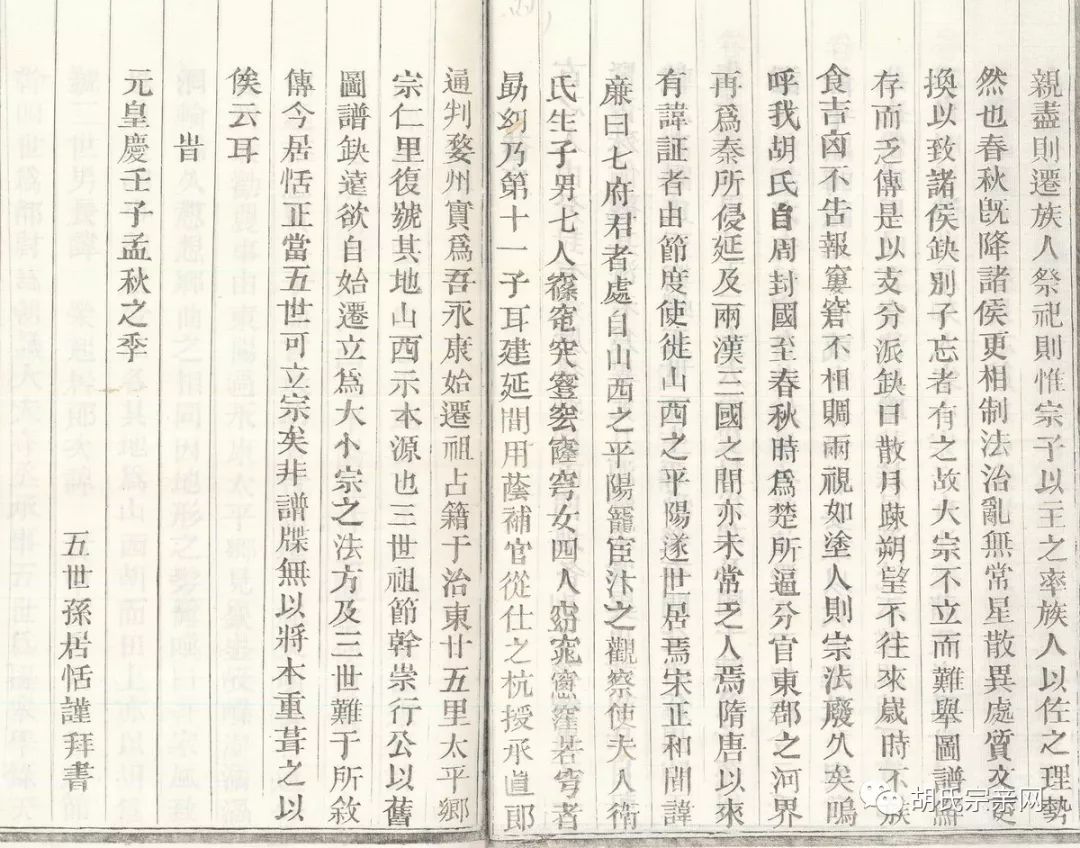 親盡則遷族人祭祀則惟宗子以主之率族人以佐之理勢
然也春秋旣降諸侯更相制法治亂無常星散異處質文更
換以致諸侯缺別子忘者有之故大宗不立而難舉圖譜
存而乏傳是以支分派缺日散月踈朔望不往來歲時不
食吉凶不告報窶窘不相賙兩視如塗人則宗法廢久矣嗚
呼我胡氏自周封國至春秋時爲楚所逼分官東郡之河界
再爲秦所侵延及兩漢三國之間亦未常乏人焉隋唐以來
有諱証者由節度使徙山西之平陽遂世居焉宋正和間諱
㢘曰七府君者處自山西之平陽寵宦汴之觀察使夫人衛
氏生子男七人窱窀突窒宏窿穹女四人窈窕窗窪若穹者
勗幼乃第十一子耳建延間用蔭補官從仕之杭授承直郎
通判婺州實爲吾永康始遷祖占籍于治東廿五里太平鄉
宗仁里復號其地山西示本源也三世祖節幹崇行公以舊
圖譜缺違欲自始遷立爲大小宗之法方及三世難于所敘
傳今居恬正當五世可立宗矣非譜牒無以將本重葺之以
俟云耳
旹
元皇慶壬子孟秋之季
五世孫居恬謹拜書
胡氏宗亲网